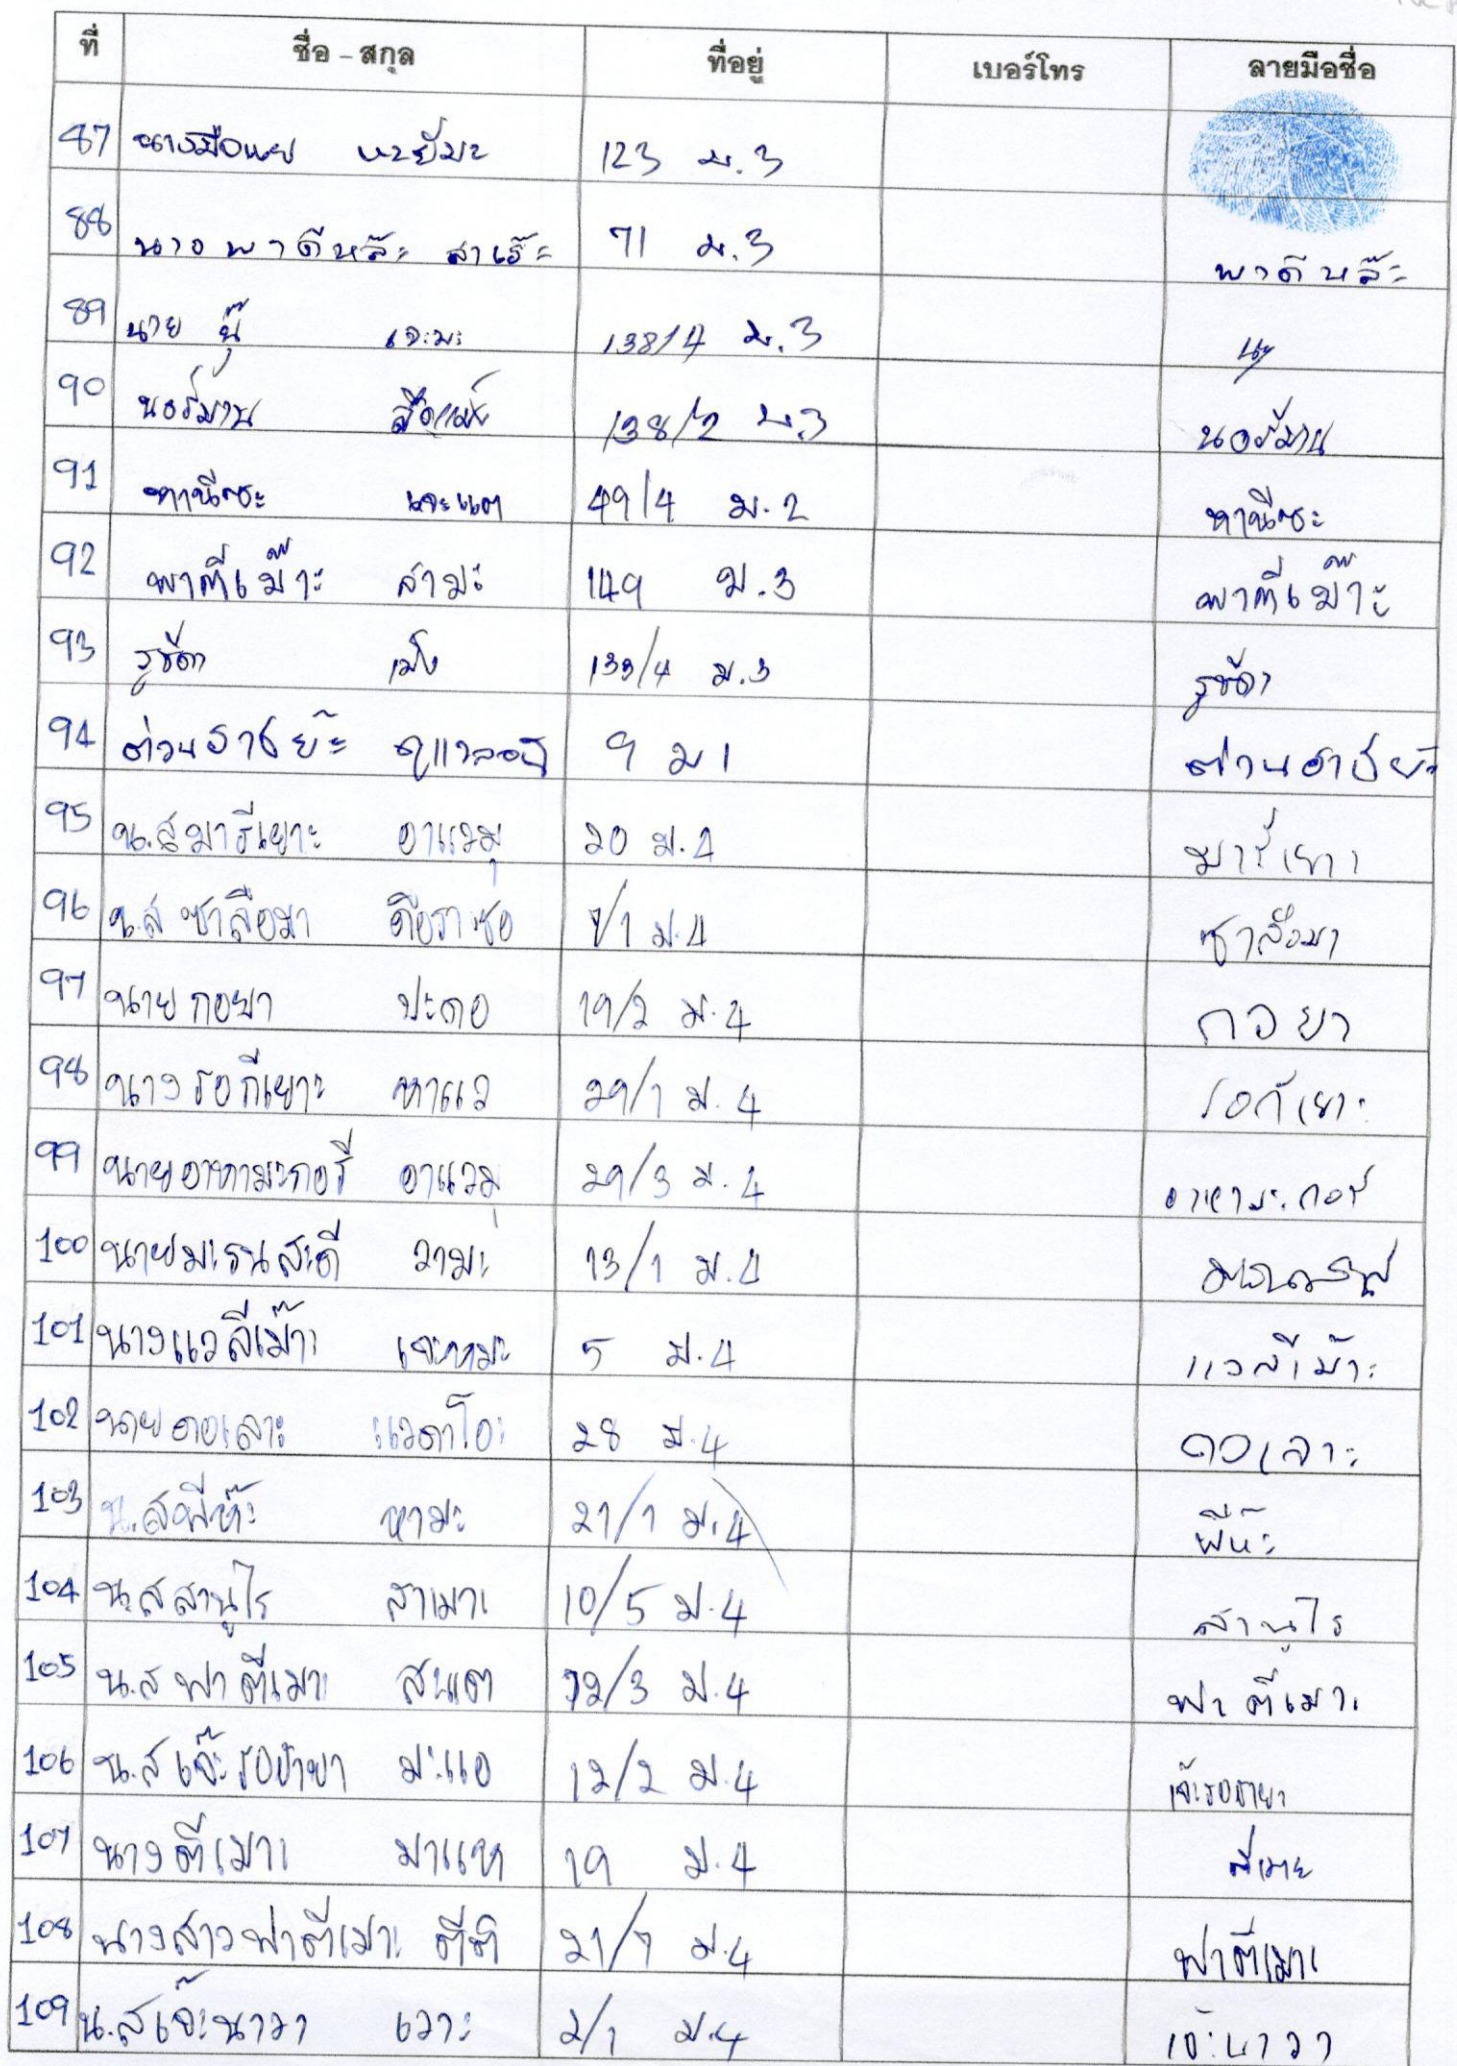 ที่ ชื่อ - สกุล ที่อยู่ เบอร์โทร ลายมือชื่อ
87 123 ม.3
88 นาง พาดีหล๊ะ สาเร๊ะ 71 ม.3 พาดีหล๊ะ
89 นาย นุ๊ เจะมะ 138/4 ม.3
90 นอร์มาน 138/2 ม.3 นอร์มาน
91 หานีซะ เจะแต 49/4 ม.2 หานีซะ
92 พาตีเม๊าะ สามะ 149 ม.3 พาตีเม๊าะ
93 รูซีดา เม็ง 133/4 ม.3 รูซีดา
94 ต่วน 9 ม 1 ต่วน
95 น.ส มารีเยาะ อาแวมุ 20 ม.4
96 น.ส ซาลือมา ดือราซอ 1/1 ม.4 ซาลือมา
97 นาย กอยา ปะดอ 19/2 ม.4 กอยา
98 นาง รอกีเยาะ หาแว 29/1 ม.4 รอกีเยาะ
99 นาย อาหามะกอรี อาแวมุ 29/3 ม.4 อาหามะกอรี
100 นาย วามะ 13/1 ม.4
101 นาง แวลีเม๊าะ เจะหมะ 5 ม.4 แวลีเม๊าะ
102 นาย ดอเลาะ แวดาโอะ 28 ม.4 ดอเลาะ
103 น.ส หามะ 21/1 ม.4
104 น.ส สานูไร สาเมาะ 10/5 ม.4 สานูไร
105 น.ส ฟาตีเมาะ สนแต 12/3 ม.4 ฟาตีเมาะ
106 น.ส มะแอ 12/2 ม.4
107 นาง ตีเมาะ มาแห 19 ม.4
108 นางสาว ฟาตีเมาะ ตีติ 21/7 ม.4 ฟาตีเมาะ
109 น.ส เจ๊ะนาวา เวาะ 2/1 ม.4 เจ๊ะนาวา